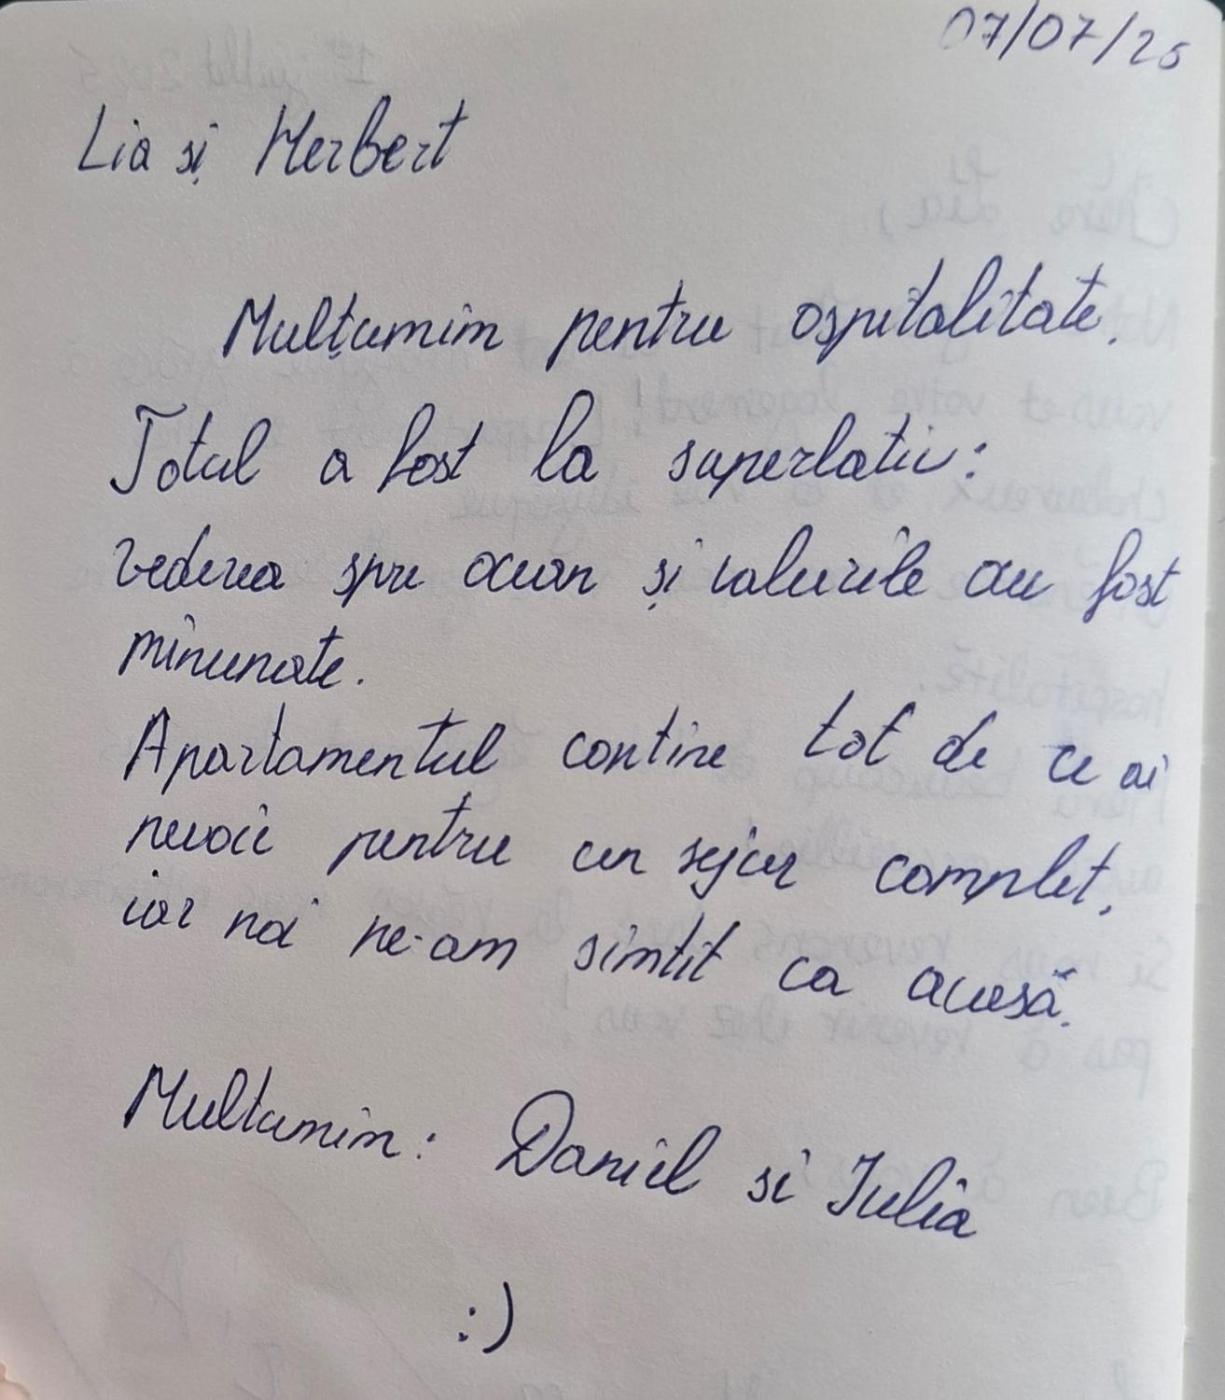 07/07/25
Lia și Herbert
Mulțumim pentru ospitalitate.
Totul a fost la superlativ:
vederea spre ocean și valurile au fost
minunate.
Apartamentul contine tot de ce ai
nevoie pentru un sejur complet,
iar noi ne-am simtit ca acasă.
Multumim: Daniel si Iulia
:)